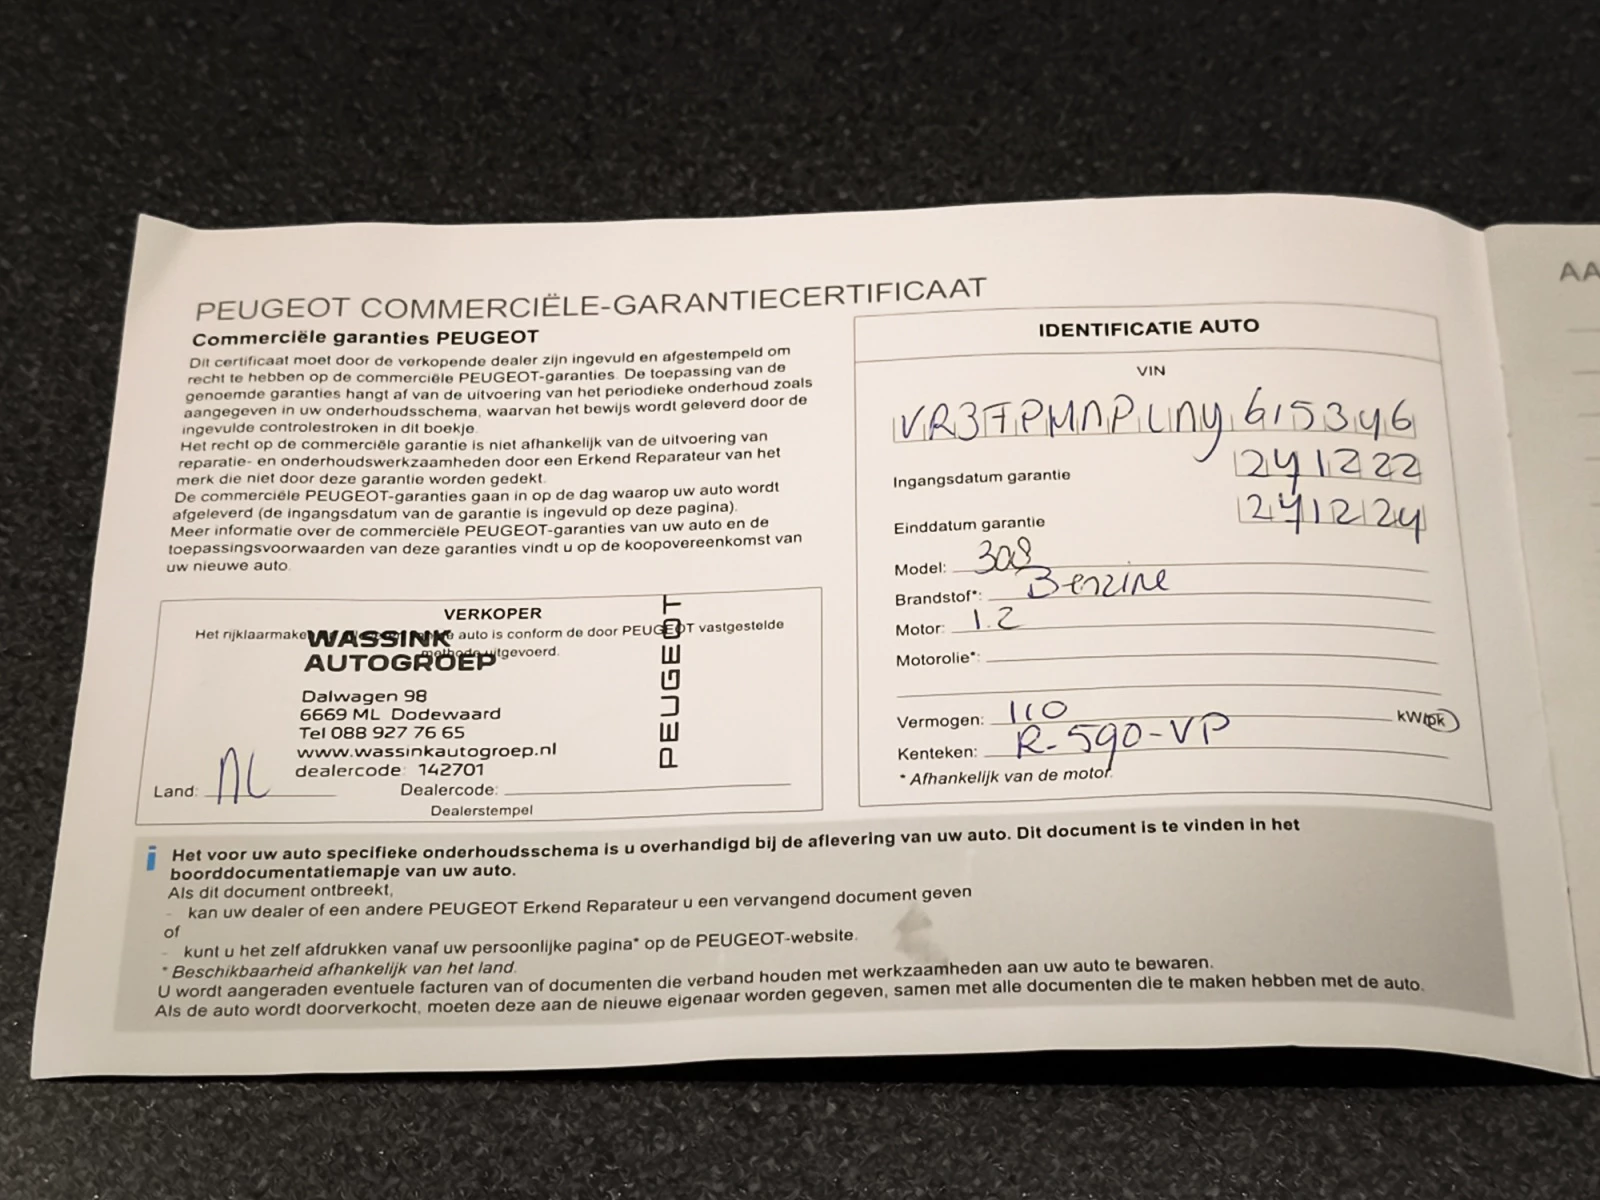 PEUGEOT COMMERCIËLE-GARANTIECERTIFICAAT
Commerciële garanties PEUGEOT
Dit certificaat moet door de verkopende dealer zijn ingevuld en afgestempeld om
recht te hebben op de commerciële PEUGEOT-garanties. De toepassing van de
genoemde garanties hangt af van de uitvoering van het periodieke onderhoud zoals
aangegeven in uw onderhoudsschema, waarvan het bewijs wordt geleverd door de
ingevulde controlestroken in dit boekje.
Het recht op de commerciële garantie is niet afhankelijk van de uitvoering van
reparatie- en onderhoudswerkzaamheden door een Erkend Reparateur van het
merk die niet door deze garantie worden gedekt.
De commerciële PEUGEOT-garanties gaan in op de dag waarop uw auto wordt
afgeleverd (de ingangsdatum van de garantie is ingevuld op deze pagina).
Meer informatie over de commerciële PEUGEOT-garanties van uw auto en de
toepassingsvoorwaarden van deze garanties vindt u op de koopovereenkomst van
uw nieuwe auto.
VERKOPER
Het rijklaarmaken auto is conform de door PEUGEOT vastgestelde
methode uitgevoerd.
WASSINK
AUTOGROEP
Dalwagen 98
6669 ML Dodewaard
Tel 088 927 76 65
www.wassinkautogroep.nl
dealercode: 142701
PEUGEOT
Land: NL
Dealercode:
Dealerstempel
IDENTIFICATIE AUTO
VIN
VR3FPMNPLNY615346
Ingangsdatum garantie 241222
Einddatum garantie 241224
Model: 308
Brandstof*: Benzine
Motor: 1.2
Motorolie*:
Vermogen: 110 kW/pk
Kenteken: R-590-VP
* Afhankelijk van de motor.
i Het voor uw auto specifieke onderhoudsschema is u overhandigd bij de aflevering van uw auto. Dit document is te vinden in het
boorddocumentatiemapje van uw auto.
Als dit document ontbreekt,
- kan uw dealer of een andere PEUGEOT Erkend Reparateur u een vervangend document geven
of
- kunt u het zelf afdrukken vanaf uw persoonlijke pagina* op de PEUGEOT-website.
* Beschikbaarheid afhankelijk van het land.
U wordt aangeraden eventuele facturen van of documenten die verband houden met werkzaamheden aan uw auto te bewaren.
Als de auto wordt doorverkocht, moeten deze aan de nieuwe eigenaar worden gegeven, samen met alle documenten die te maken hebben met de auto.
AA